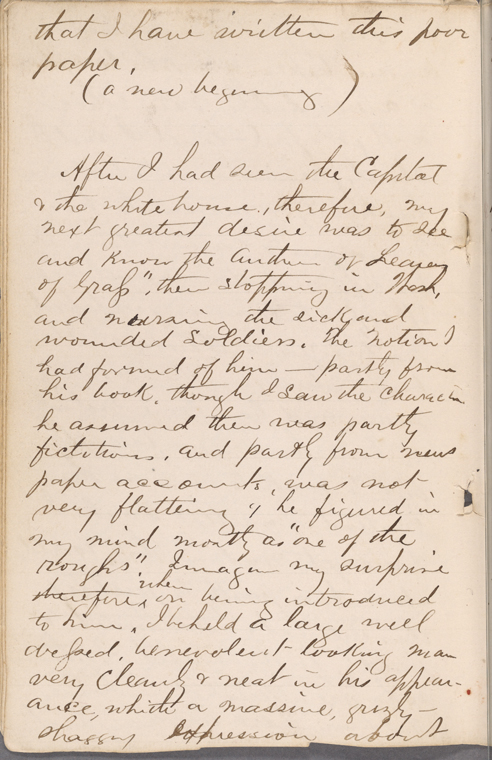 that I have written this poor
paper.
(a new beginning)
After I had seen the Capital
& the white house, therefore, my
next greatest desire was to see
and know the author of Leaves
of Grass", then stopping in Wash,
and nursing the sick and
wounded soldiers. The notion I
had formed of him — partly from
his book, though I saw the character
he assumed then was partly
fictitious, and partly from news
paper accounts, was not
very flattering & he figured in
my mind mostly as "one of the
roughs". Imagin my surprise
therefore, when on being introduced
to him, I beheld a large well
dressed, benevolent looking man
very cleanly & neat in his appear-
ance, whith a massive, grizly
shaggy expression about